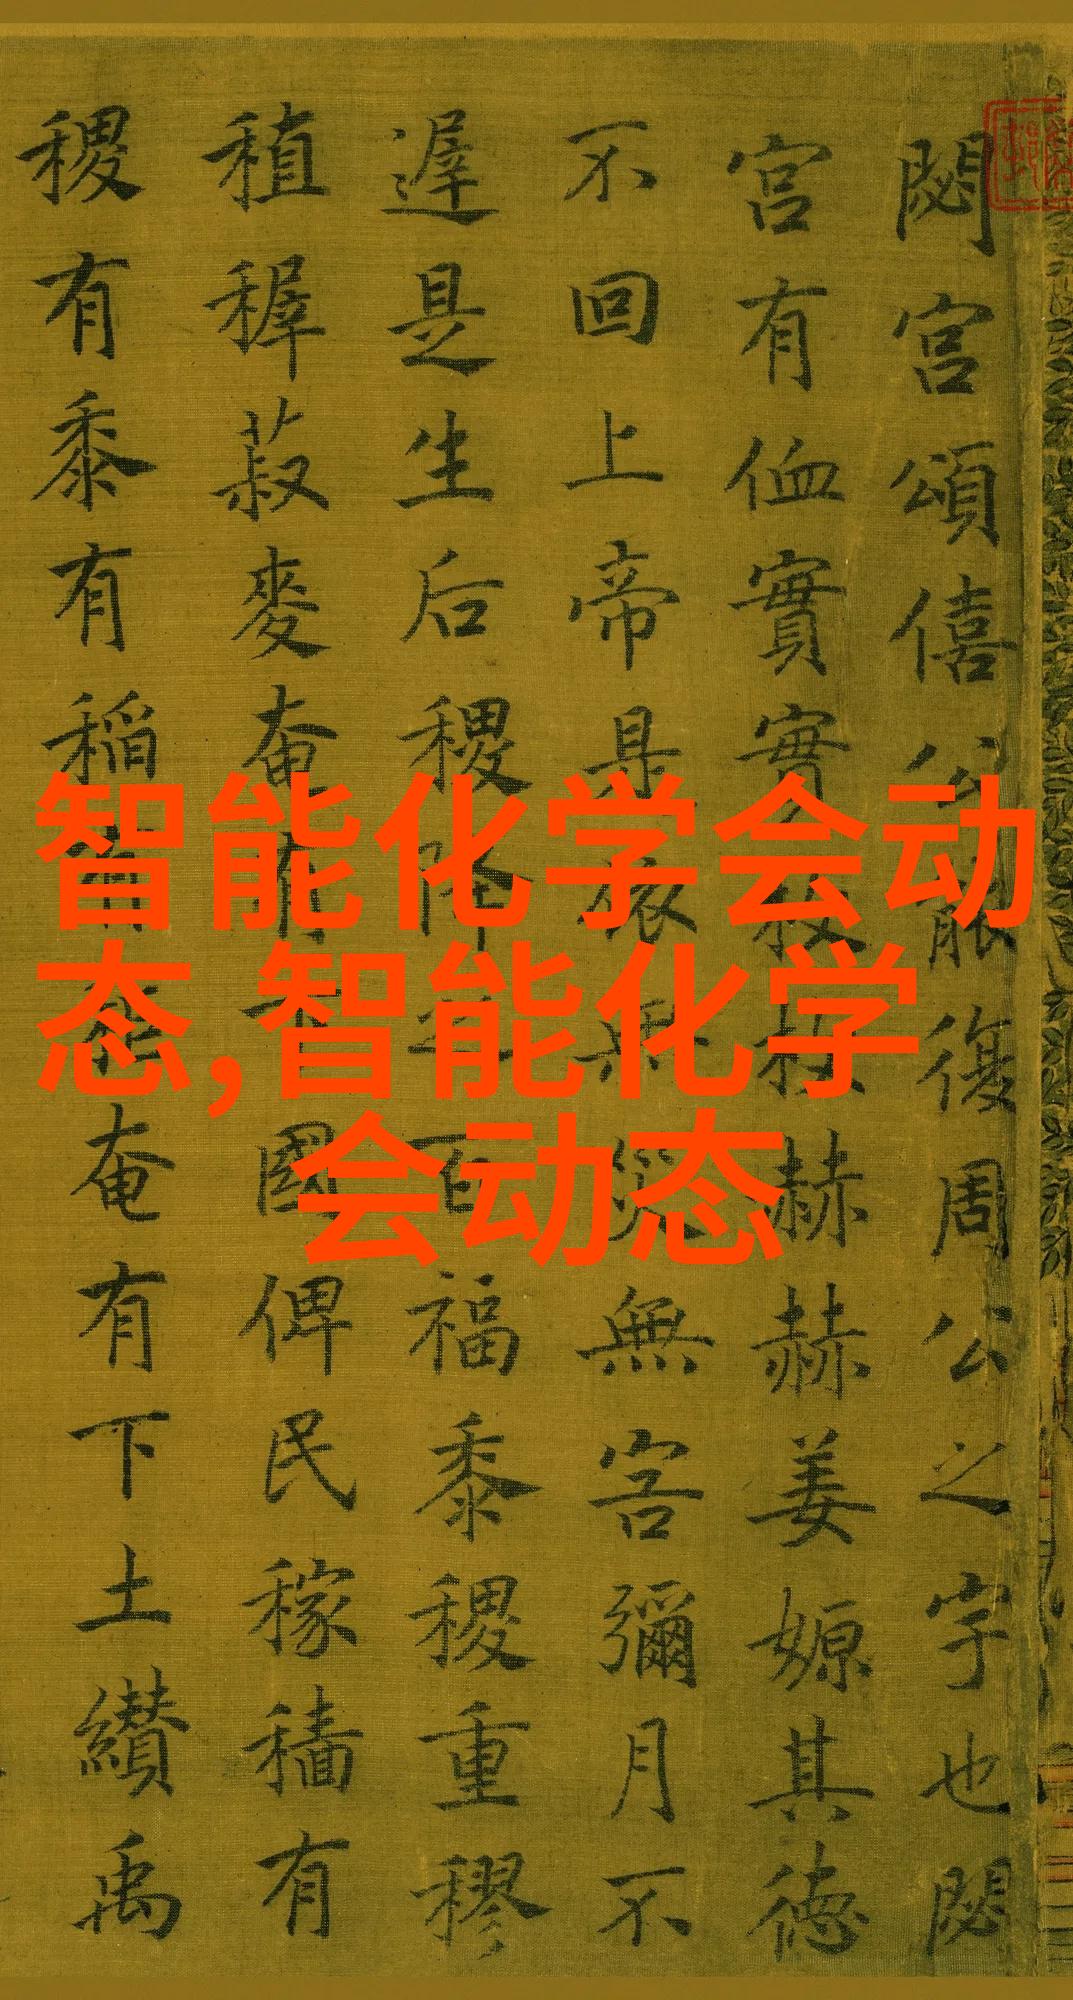 智能化学会动
态,智能化学
会动态
閟宮頌僖公能復周公之宇也閟
宮有侐實實枚枚赫赫姜嫄其德
不回上帝是依無災無害彌月不
遲是生后稷降之百福黍稷重穋
稙稺菽麥奄有下國俾民稼穡有
稷有黍有稻有秬奄有下土纘禹